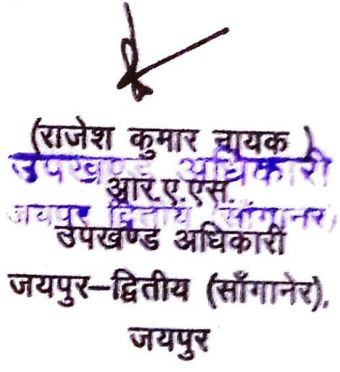 (राजेश कुमार नायक)
उपखण्ड अधिकारी
आर.ए.एस.
जयपुर द्वितीय (साँगानेर)
उपखण्ड अधिकारी
जयपुर–द्वितीय (साँगानेर),
जयपुर